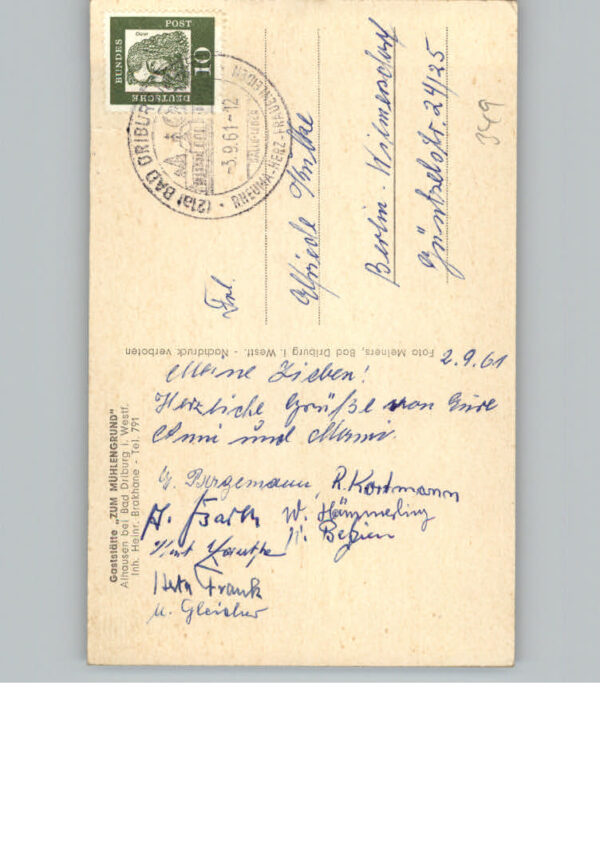 POST
10
DEUTSCHE
BUNDES
(21a) BAD DRIBURG
-3.9.61-12
RHEUMA-HERZ-FRAUENLEIDEN
Frl.
Elfriede
Berlin-Wilmersdorf
Güntzelstr. 24/25
349
Foto Meiners, Bad Driburg i. Westf. - Nachdruck verboten
Gaststätte „ZUM MÜHLENGRUND"
Alhausen bei Bad Driburg i. Westf.
Inh. Heinr. Brakhane - Tel. 791
2.9.61
Meine Lieben!
Herzliche Grüße von Eure
Anni und Mami.
Bergemann, R. Kortmann
W. Hämmerling
Kurt
Frank
u. Gleicher